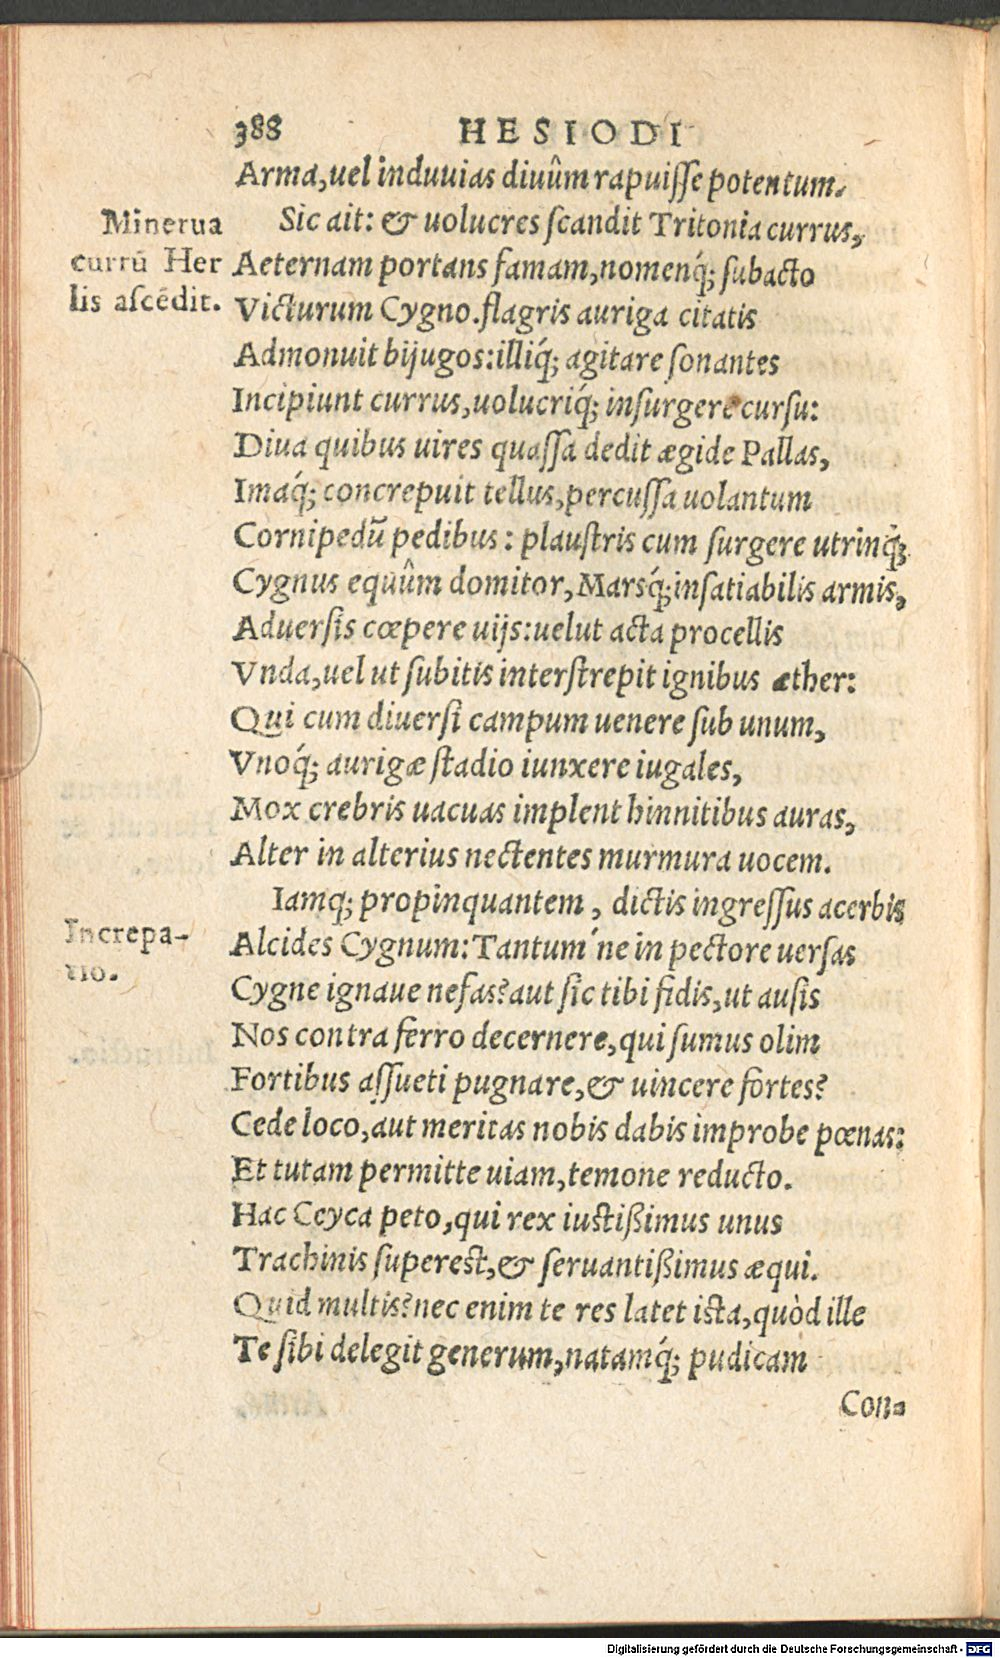 388 HESIODI
Arma,uel induuias diuûm rapuisse potentum.
Minerua
currū Her
lis ascēdit.
Sic ait: & uolucres scandit Tritonia currus,
Aeternam portans famam,nomenq́; subacto
Victurum Cygno.flagris auriga citatis
Admonuit bijugos:illiq́; agitare sonantes
Incipiunt currus,uolucriq́; insurgere cursu:
Diua quibus uires quassa dedit ægide Pallas,
Imaq́; concrepuit tellus,percussa uolantum
Cornipedū pedibus: plaustris cum surgere utrinq́;
Cygnus equûm domitor,Marsq́;insatiabilis armis,
Aduersis cœpere uijs:uelut acta procellis
Vnda,uel ut subitis interstrepit ignibus æther:
Qui cum diuersi campum uenere sub unum,
Vnoq́; aurigæ stadio iunxere iugales,
Mox crebris uacuas implent hinnitibus auras,
Alter in alterius nectentes murmura uocem.
Iamq; propinquantem, dictis ingressus acerbis
Increpa-
tio.
Alcides Cygnum:Tantum´ne in pectore uersas
Cygne ignaue nefas?aut sic tibi fidis,ut ausis
Nos contra ferro decernere,qui sumus olim
Fortibus assueti pugnare,& uincere fortes?
Cede loco,aut meritas nobis dabis improbe pœnas:
Et tutam permitte uiam,temone reducto.
Hac Ceyca peto,qui rex iustißimus unus
Trachinis superest,& seruantißimus æqui.
Quid multis?nec enim te res latet ista,quòd ille
Te sibi delegit generum,natamq́; pudicam
Con-
Digitalisierung gefördert durch die Deutsche Forschungsgemeinschaft - DFG